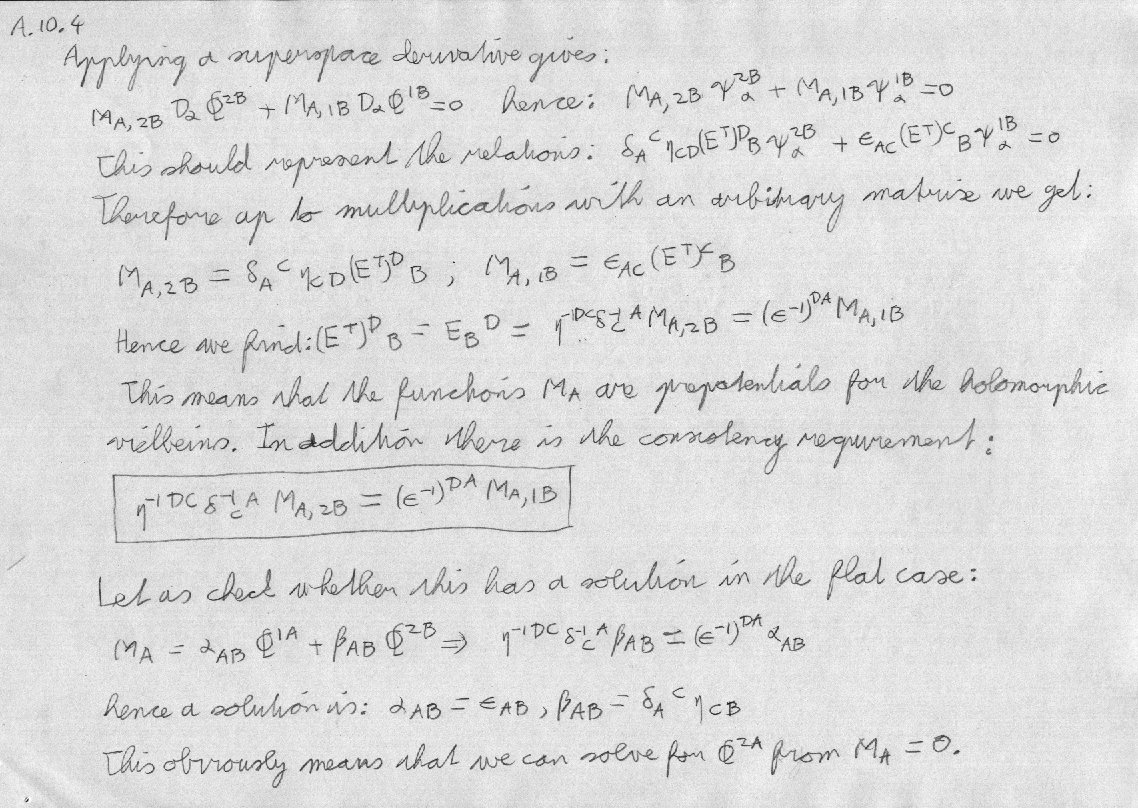 A.10.4
Applying a superspace derivative gives:
M_{A,2B} D_α Φ^{2B} + M_{A,1B} D_α Φ^{1B} = 0 hence: M_{A,2B} ψ_α^{2B} + M_{A,1B} ψ_α^{1B} = 0
This should represent the relations: δ_A^C η_{CD}(E^T)^D_B ψ_α^{2B} + ε_{AC}(E^T)^C_B ψ_α^{1B} = 0
Therefore up to multiplications with an arbitrary matrix we get:
M_{A,2B} = δ_A^C η_{CD}(E^T)^D_B ; M_{A,1B} = ε_{AC}(E^T)^C_B
Hence we find: (E^T)^D_B = E_B^D = η^{-1DC} δ^{-1}_C^A M_{A,2B} = (ε^{-1})^{DA} M_{A,1B}
This means that the functions M_A are prepotentials for the holomorphic
vielbeins. In addition there is the consistency requirement:
η^{-1DC} δ^{-1}_C^A M_{A,2B} = (ε^{-1})^{DA} M_{A,1B}
Let us check whether this has a solution in the flat case:
M_A = α_{AB} Φ^{1A} + β_{AB} Φ^{2B} ⇒ η^{-1DC} δ^{-1}_C^A β_{AB} = (ε^{-1})^{DA} α_{AB}
hence a solution is: α_{AB} = ε_{AB}, β_{AB} = δ_A^C η_{CB}
This obviously means that we can solve for Φ^{2A} from M_A = 0.